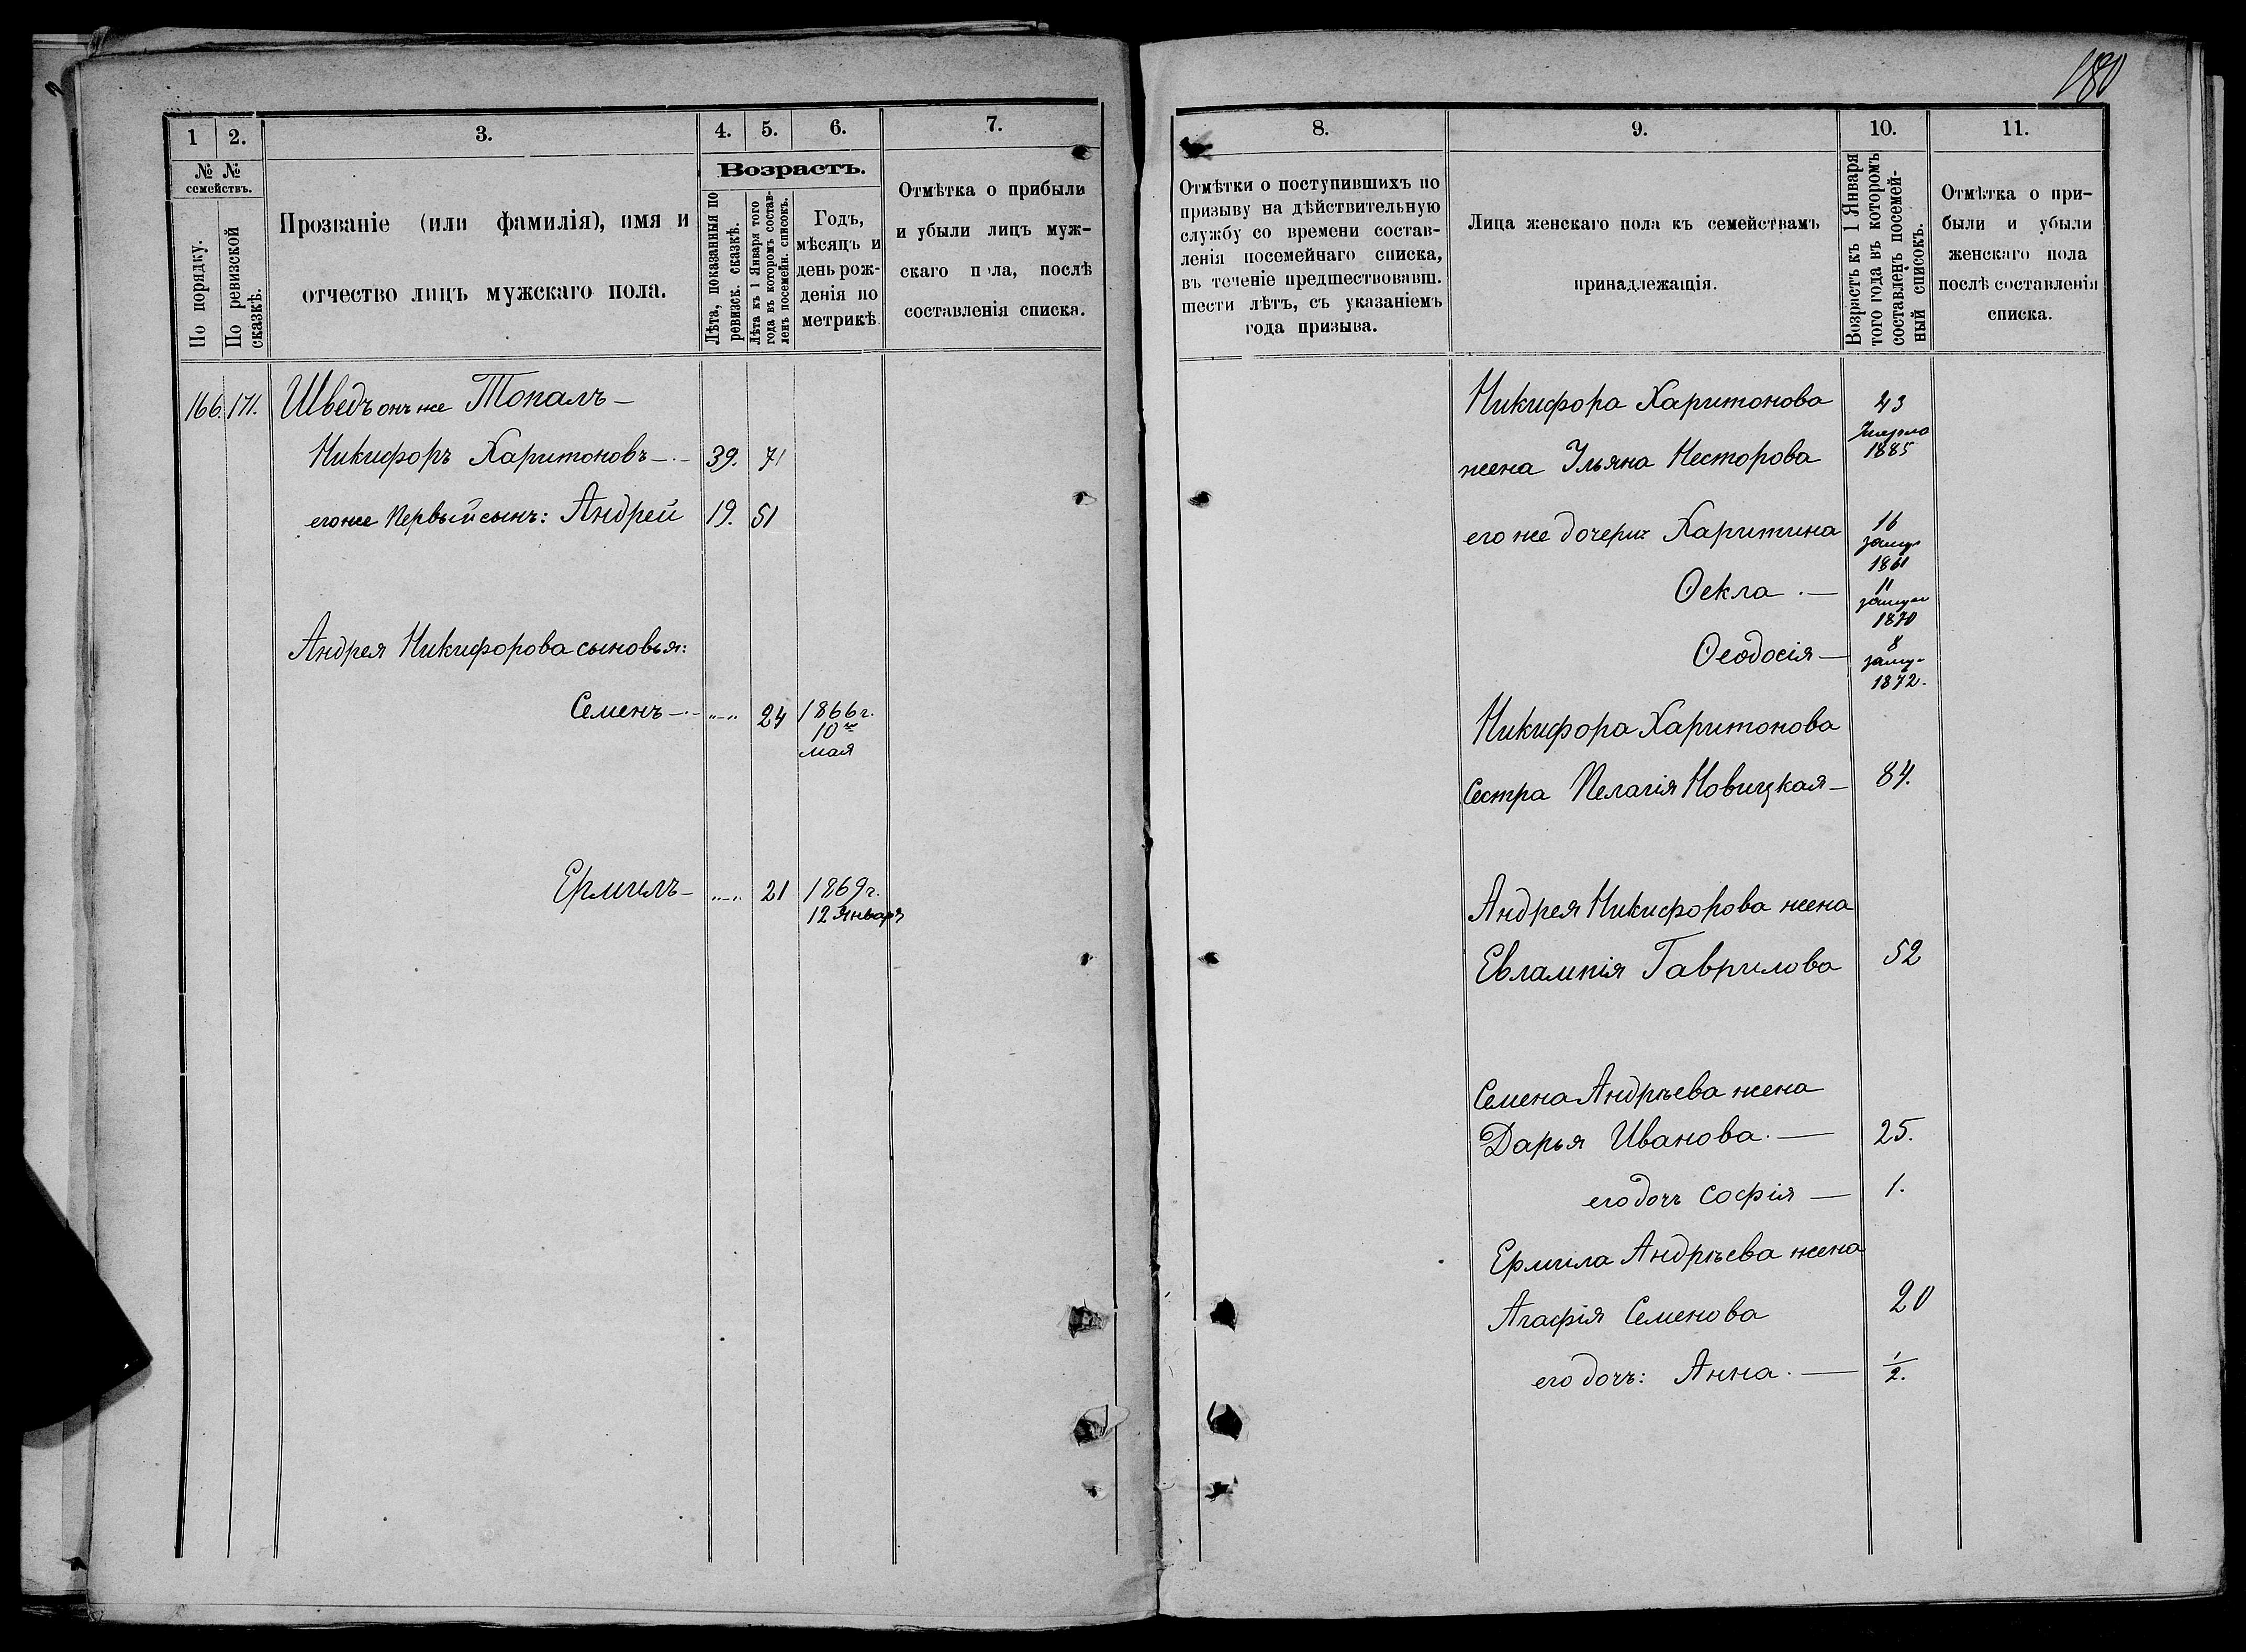 180
1
2.
3.
4.
5.
6.
7.
№ №
семействъ.
По порядку.
По ревизской
сказкѣ.
Прозваніе (или фамилія), имя и
отчество лицъ мужскаго пола.
Возрастъ.
Лѣта, показанныя по
ревизск. сказкѣ.
Лѣта къ 1 Января того
года въ которомъ состав-
ленъ посемейн. списокъ.
Годъ,
мѣсяцъ и
день рож-
денія по
метрикѣ
Отмѣтка о прибыли
и убыли лицъ муж-
скаго пола, послѣ
составленія списка.
166. 171. Шведъ онъ же Топалъ —
Никифоръ Харитоновъ — 39. 71
его же Первый сынъ: Андрей 19. 51
Андрея Никифорова сыновья:
Семенъ — „—„ 24 1866 г.
10го
мая
Ермилъ — „—„ 21 1869 г.
12 Января
8.
9.
10.
11.
Отмѣтки о поступившихъ по
призыву на дѣйствительную
службу со времени состав-
ленія посемейнаго списка,
въ теченіе предшествовавш.
шести лѣтъ, съ указаніемъ
года призыва.
Лица женскаго пола къ семействамъ
принадлежащія.
Возрастъ къ 1 Января
того года въ которомъ
составленъ посемей-
ный списокъ.
Отмѣтка о при-
были и убыли
женскаго пола
послѣ составленія
списка.
Никифора Харитонова 43
Умерла
жена Ульяна Несторова 1885
его же дочери: Харитина 16
замуж
1861
Ѳекла . — 11
замуж
1870
Ѳеодосія — 8
заму-
1872.
Никифора Харитонова
Сестра Пелагія Новицкая — 84.
Андрея Никифорова жена
Евлампія Гаврилова 52
Семена Андрѣева жена
Дарья Иванова. — 25.
его дочь Софія — 1.
Ермила Андрѣева жена
Агафія Семенова 20
его дочь: Анна. — 1/2.